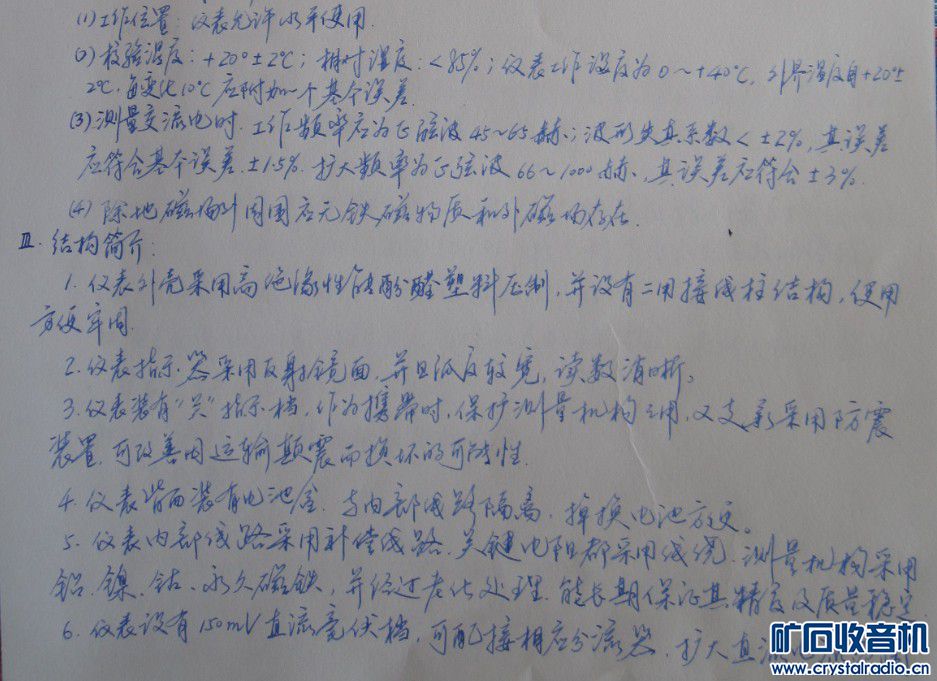 (1) 工作位置：仪表允许水平使用.
(2) 校验温度：+20°±2℃；相对湿度：<85%；仪表工作温度为0～+40℃, 外界温度自+20°±
2℃, 每变化10℃应附加一个基本误差.
(3) 测量交流电时. 工作频率应为正弦波45～65赫.；波形失真系数<±2%, 其误差
应符合基本误差.±1.5%. 扩大频率为正弦波66～1000赫. 其误差应符合±3%.
(4) 除地磁场外周围应无铁磁物质和外磁场存在.
Ⅲ. 结构简介：
1. 仪表外壳采用高绝缘性能酚醛塑料压制, 并设有二用接线柱结构, 使用
方便牢固.
2. 仪表指示器采用反射镜面. 并且弧度较宽, 读数清晰。
3. 仪表装有“关”指示档, 作为携带时, 保护测量机构之用, 又支承采用防震
装置, 可改善因运输颠震而损坏的可能性.
4. 仪表背面装有电池盒. 与内部线路隔离. 掉换电池方便。
5. 仪表内部线路采用补偿线路. 关键电阻都采用线绕. 测量机构采用
铝. 镍. 钴. 永久磁铁, 并经过老化处理. 能长期保证其精度及质量稳定
6. 仪表设有150mV直流毫伏档, 可配接相应分流器. 扩大直流
矿石收音机
www.crystalradio.cn